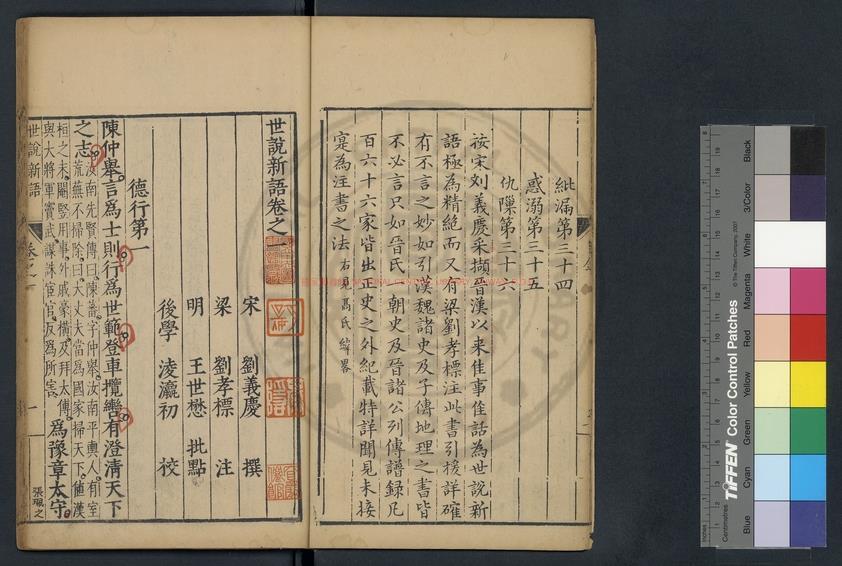 紕漏第三十四
惑溺第三十五
仇隟第三十六
按宋刘義慶采擷晉漢以来佳事佳話為世說新
語極為精絶而又有梁劉孝標注此書引援詳確
有不言之妙如引漢魏諸史及子傳地理之書皆
不必言只如晉氏一朝史及晉諸公列傳譜録凡
百六十六家皆出正史之外紀載特詳聞見未接
寔為注書之法右見髙氏緯畧
世說新語卷之一
宋 劉義慶 撰
梁 劉孝標 注
明 王世懋 批點
後學 淩瀛初 校
德行第一
陳仲舉言為士則行為世範登車攬轡有澄清天下
之志汝南先賢傳曰陳蕃字仲舉汝南平輿人有室
荒蕪不掃除曰大丈夫當為國家掃天下值漢
桓之末閹豎用事外戚豪橫及拜太傅
與大將軍竇武謀誅宦官反為所害為豫章太守
世說新語 卷之一 一
張珮之
TIFFEN Color Control Patches
© The Tiffen Company, 2007
Centimetres
Inches
Blue
Cyan
Green
Yellow
Red
Magenta
White
3/Color
Black